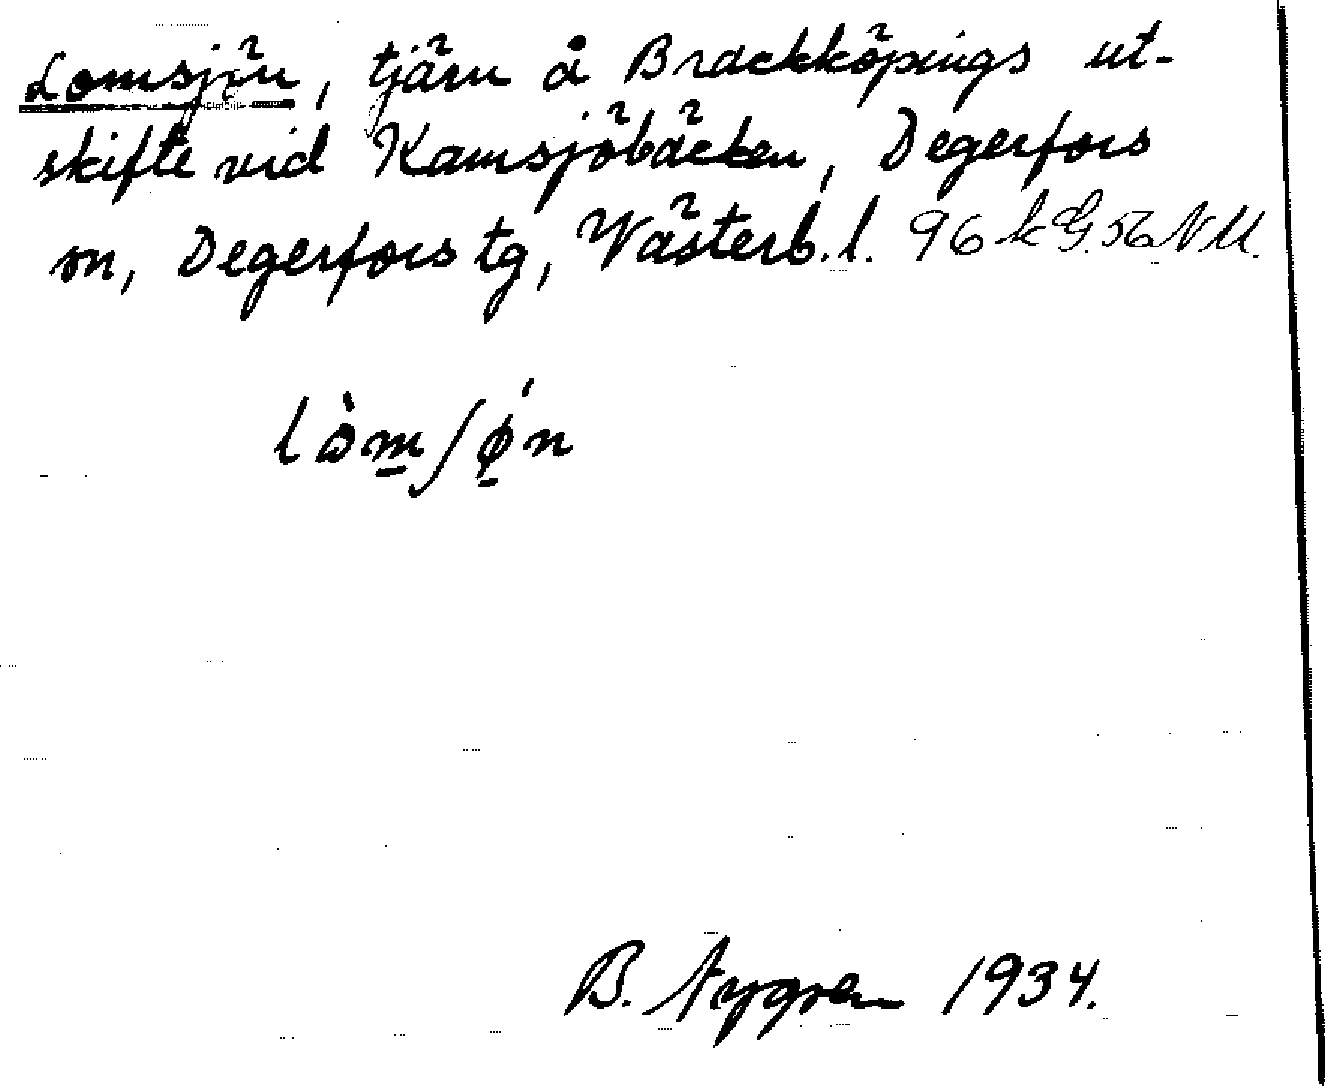 Lomsjön, tjärn å Brackköpings ut-
skifte vid Kamsjöbäcken, Degerfors
sn, Degerfors tg, Västerb. l. 96
lòmʃøn
B. Nygren 1934.